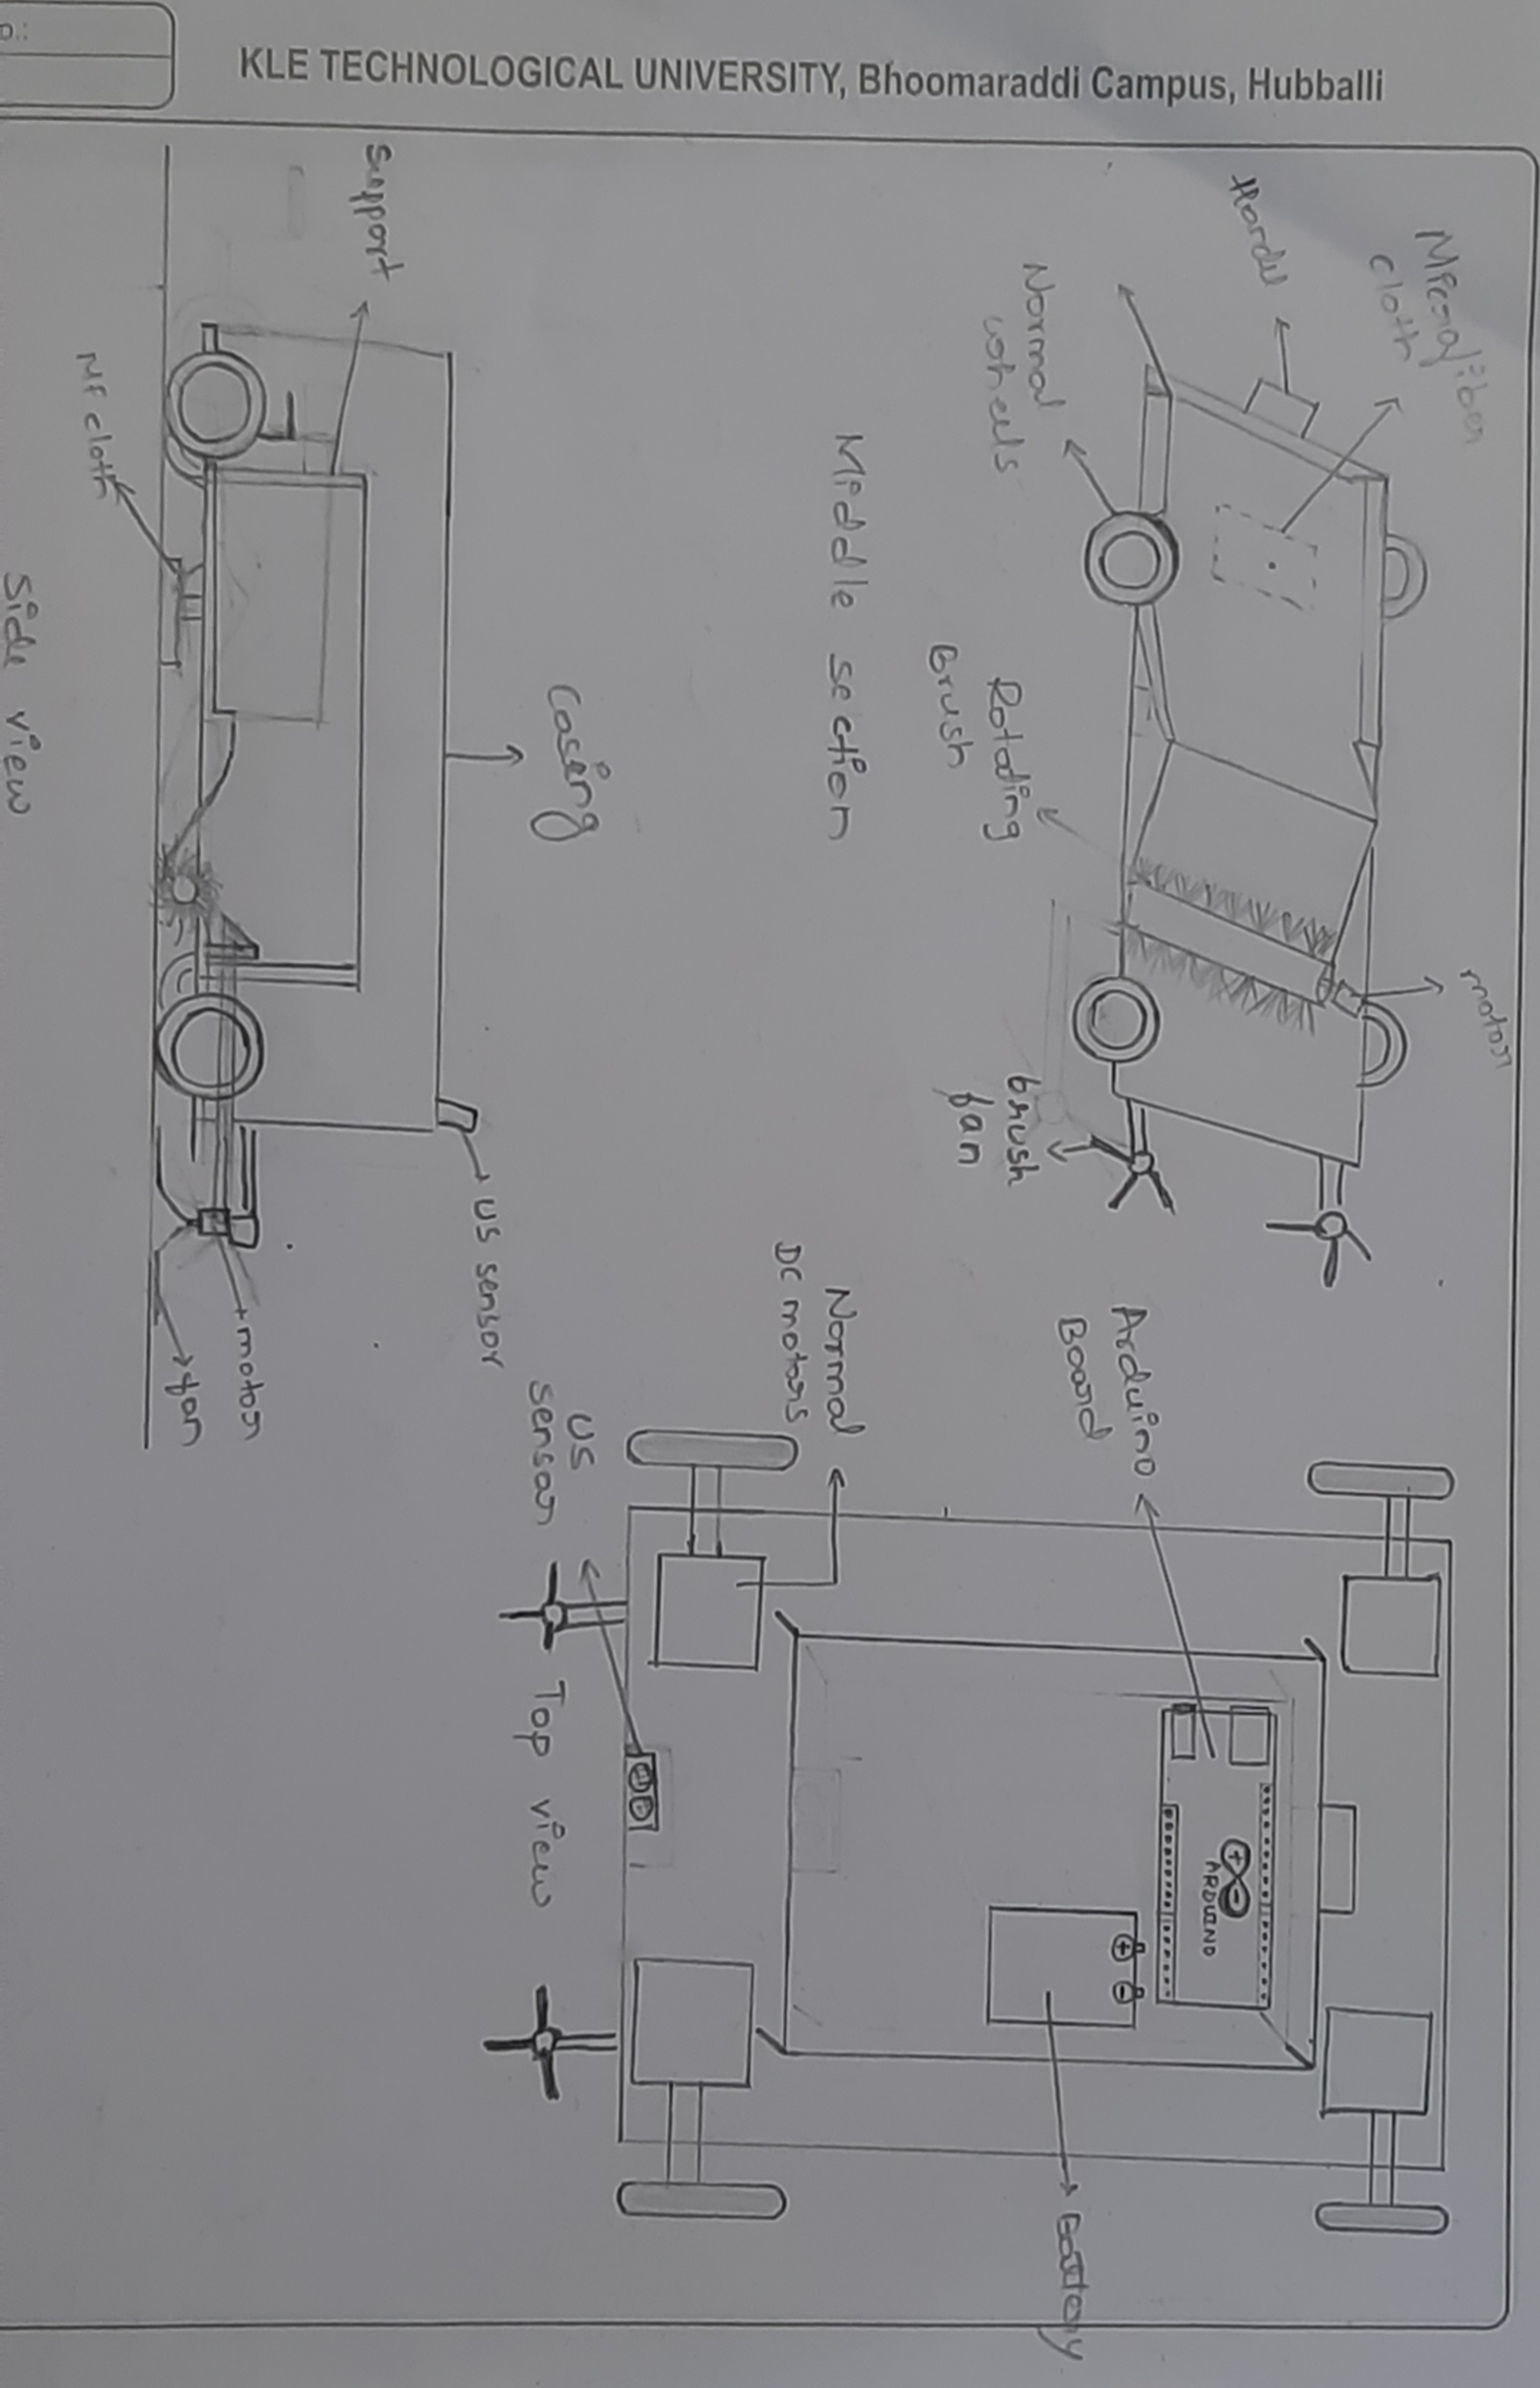 KLE TECHNOLOGICAL UNIVERSITY, Bhoomaraddi Campus, Hubballi
Microfiber
cloth
motor
Handel
Normal
wheels
Rotating
Brush
brush
fan
Middle section
ARDUINO
Arduino
Board
Battery
Normal
DC motors
US
sensor
Top view
Casing
US sensor
Support
motor
fan
Mf cloth
Side view